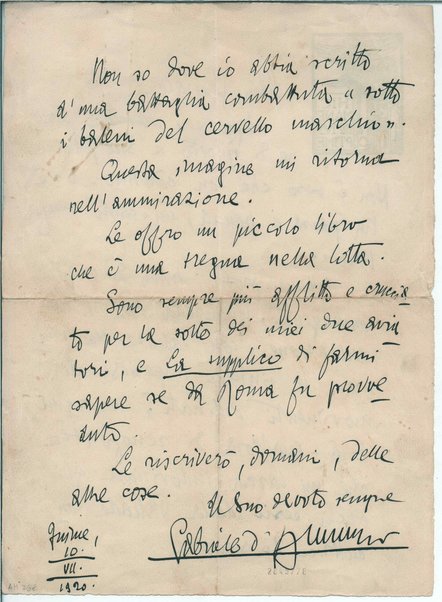 Non so dove io abbia scritto
d'una battaglia combattuta « sotto
i baleni del cervello maschio ».
Questa imagine mi ritorna
nell'ammirazione.
Le offro un piccolo libro
che è una tregua nella lotta.
Sono sempre più afflitto e crucia
to per la sorte dei miei due avia
tori, e La supplico di farmi
sapere se da Roma fu provve
duto.
Le riscriverò, domani, delle
altre cose.
Il Suo devoto sempre
Gabriele d'Annunzio
Fiume,
10.
VII.
1920.